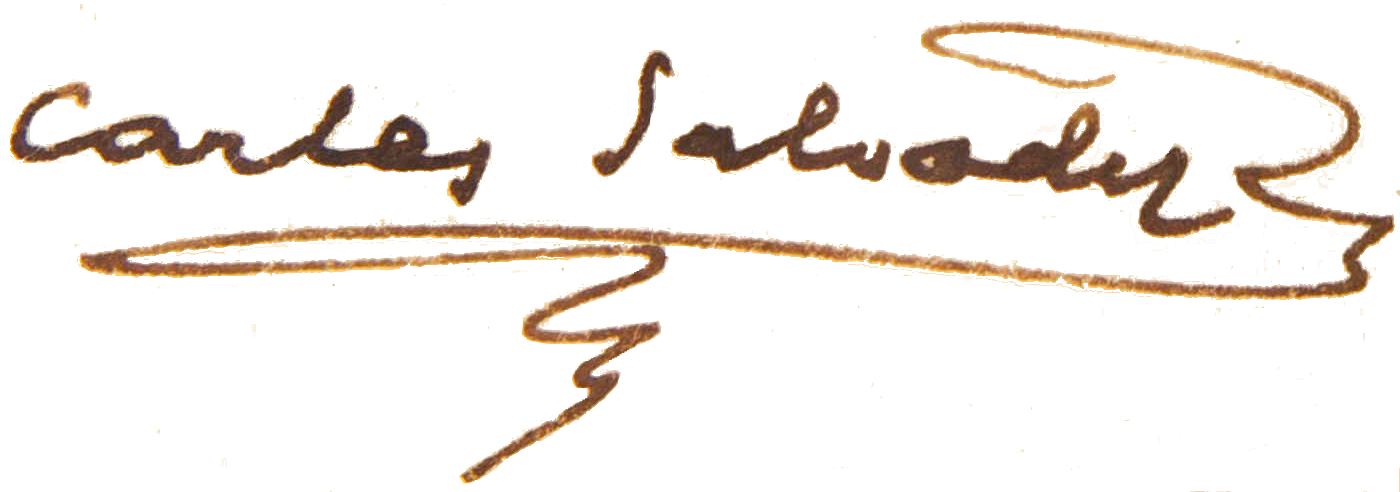 Carles Salvador